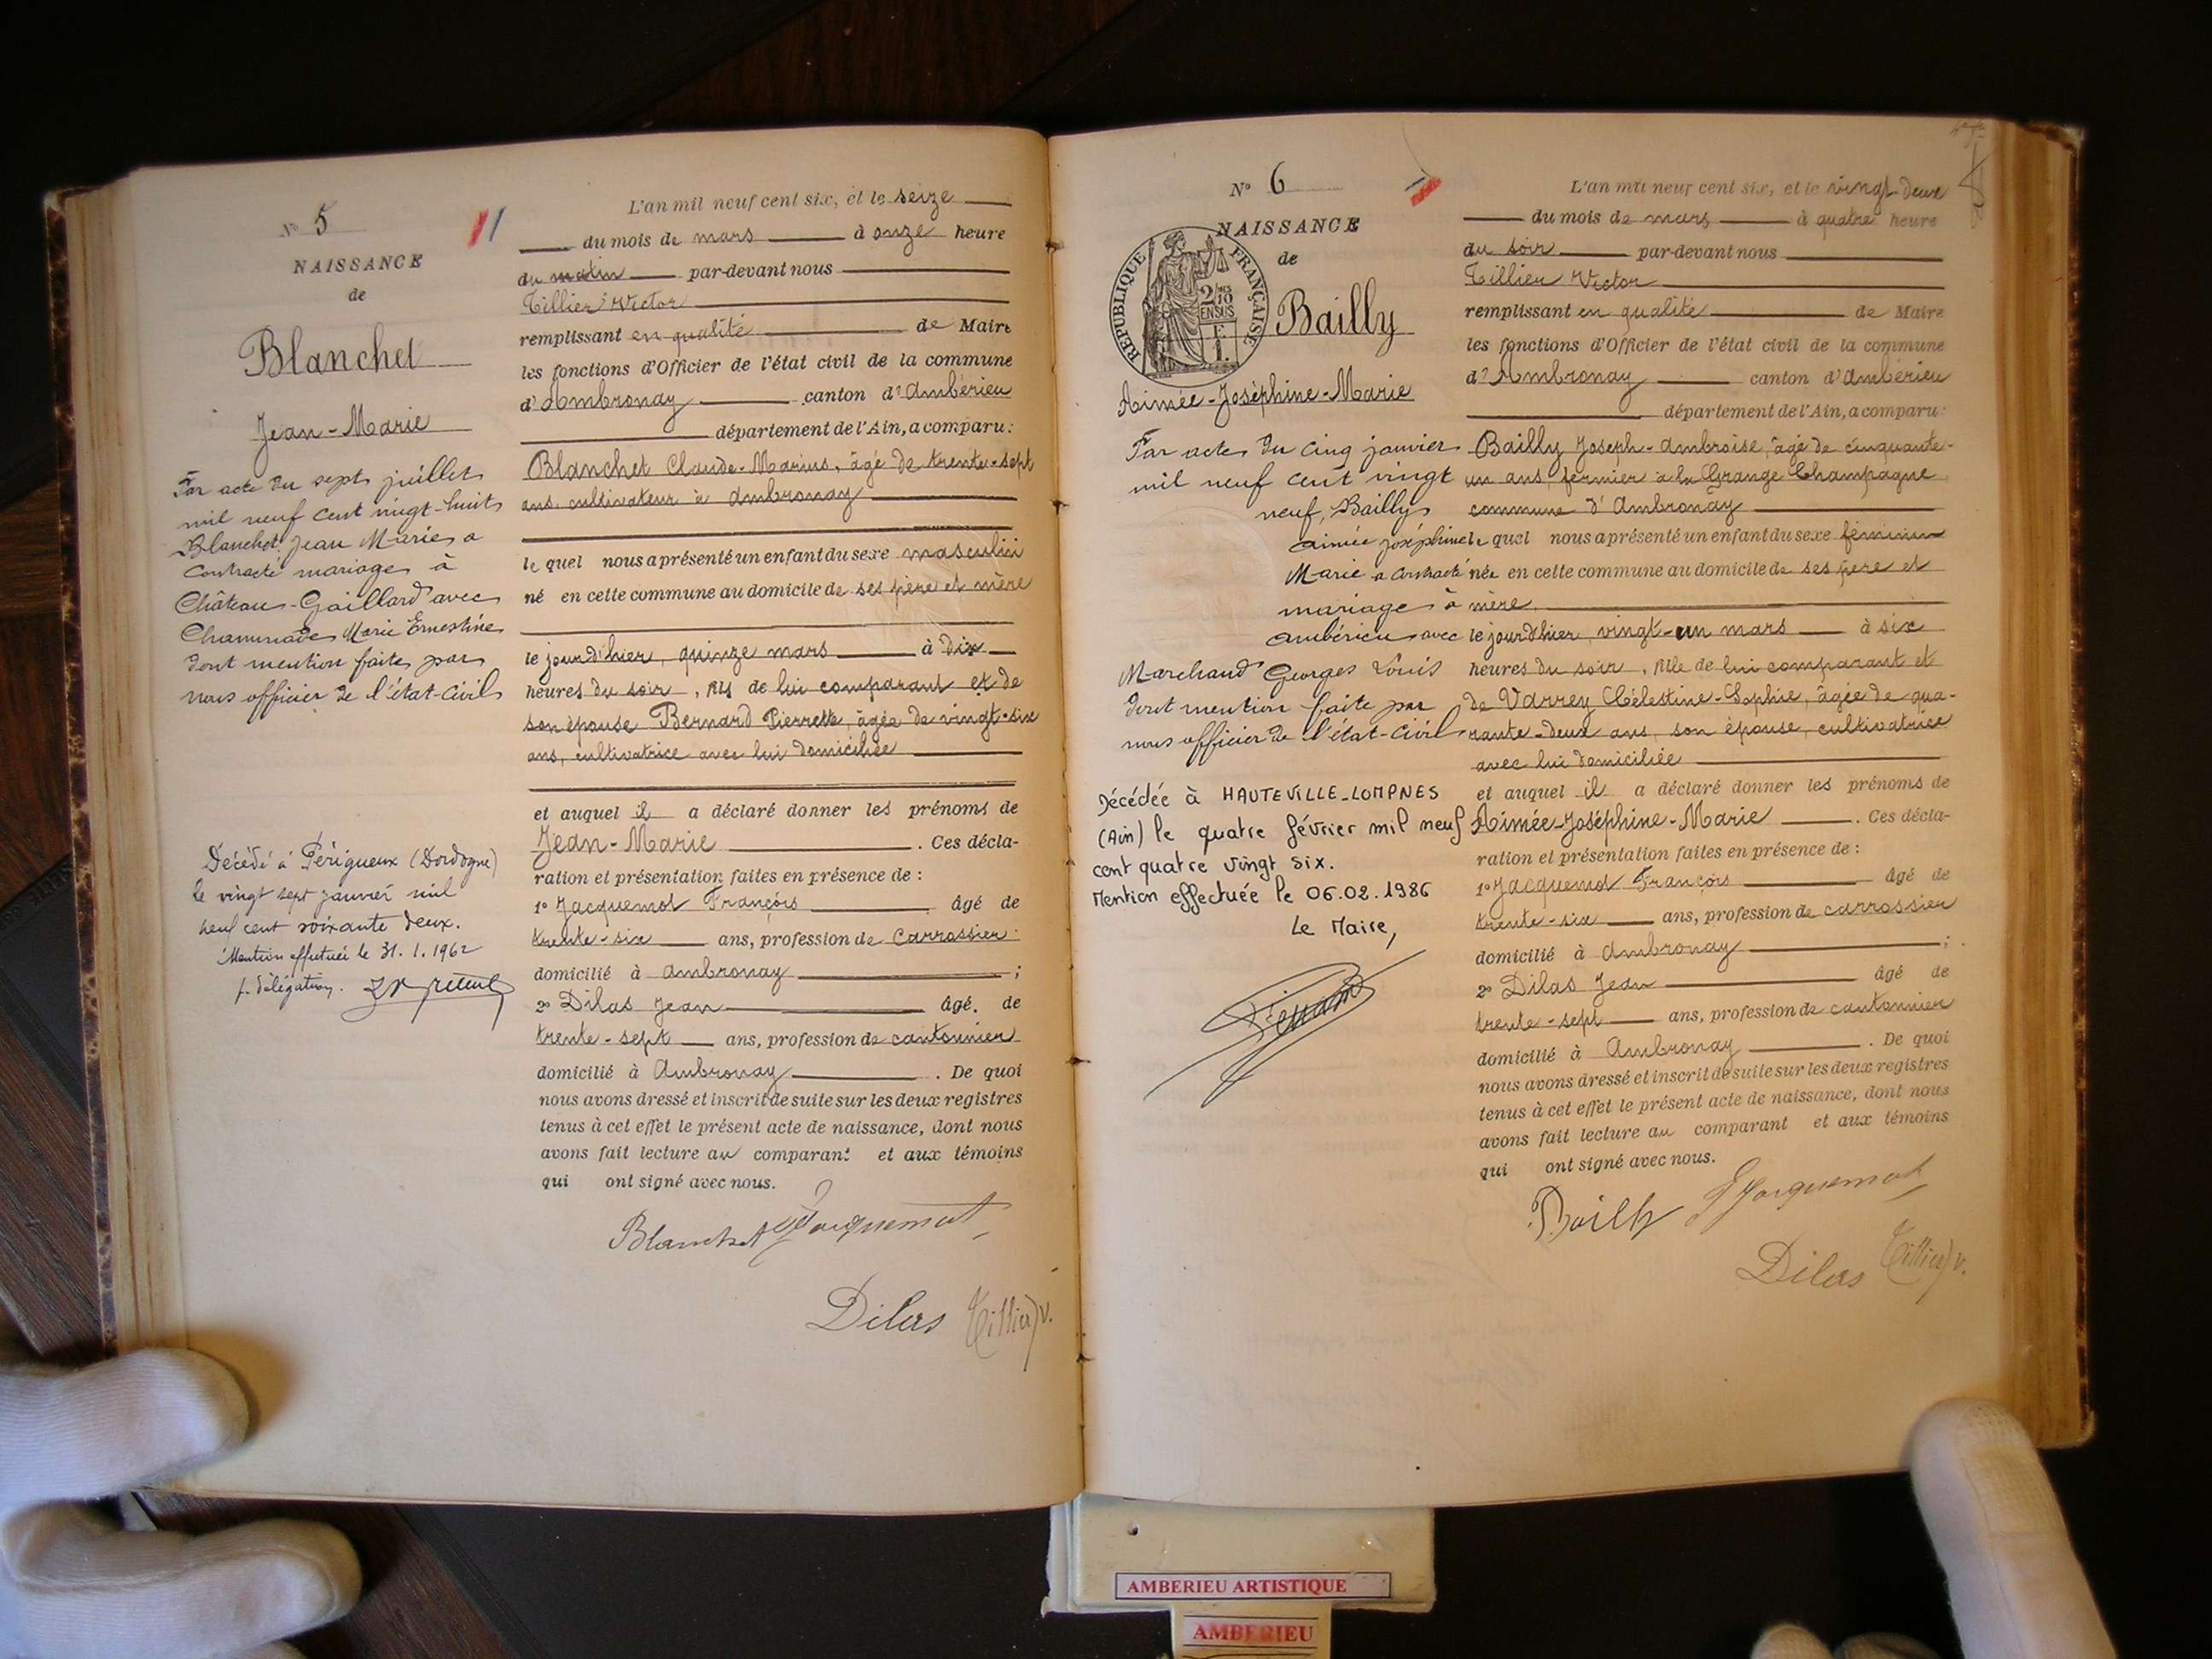 N° 5
NAISSANCE
de
Blanchet
Jean-Marie
Par acte du sept juillet
mil neuf cent vingt-huit
Blanchet Jean Marie a
contracté mariage à
Château-Gaillard avec
Chaminade Marie Ernestine
dont mention faite par
nous officier de l'état-civil
Décédé à Périgueux (Dordogne)
le vingt sept janvier mil
neuf cent soixante deux.
Mention effectuée le 31.1.1962
p. délégation.
L'an mil neuf cent six, et le seize
du mois de mars à onze heure
du matin par-devant nous
Tillier Victor
remplissant en qualité de Maire
les fonctions d'Officier de l'état civil de la commune
d'Ambronay canton d'Ambérieu
département de l'Ain, a comparu:
Blanchet Claude-Marius, âgé de trente-sept
ans, cultivateur à Ambronay
le quel nous a présenté un enfant du sexe masculin
né en cette commune au domicile de ses père et mère
le jour d'hier, quinze mars à dix
heures du soir, fils de lui comparant et de
son épouse Bernard Pierrette, âgée de vingt-six
ans, cultivatrice avec lui domiciliée
et auquel il a déclaré donner les prénoms de
Jean-Marie. Ces décla-
ration et présentation faites en présence de:
1° Jacquemot François âgé de
trente-six ans, profession de Carrossier
domicilié à Ambronay;
2° Dilas Jean âgé. de
trente-sept ans, profession de cantonnier
domicilié à Ambronay. De quoi
nous avons dressé et inscrit de suite sur les deux registres
tenus à cet effet le présent acte de naissance, dont nous
avons fait lecture au comparant et aux témoins
qui ont signé avec nous.
Blanchet Jacquemot
Dilas Tillier V.
N° 6
NAISSANCE
de
RÉPUBLIQUE FRANÇAISE
2/10
EN SUS
Bailly
Aimée-Joséphine-Marie
Par acte du cinq janvier
mil neuf cent vingt
neuf, Bailly
Aimée Joséphine
Marie a contracté
mariage à
Ambérieu avec
Marchand Georges Louis
dont mention faite par
nous officier de l'état-civil
Décédée à HAUTEVILLE-LOMPNES
(Ain) le quatre février mil neuf
cent quatre vingt six.
Mention effectuée le 06.02.1986
Le Maire,
L'an mil neuf cent six, et le vingt-deux
du mois de mars à quatre heure
du soir par-devant nous
Tillier Victor
remplissant en qualité de Maire
les fonctions d'Officier de l'état civil de la commune
d'Ambronay canton d'Ambérieu
département de l'Ain, a comparu:
Bailly Joseph-Ambroise, âgé de cinquante-
un ans, fermier à la Grange Champagne
commune d'Ambronay
le quel nous a présenté un enfant du sexe féminin
née en cette commune au domicile de ses père et
mère
le jour d'hier, vingt-un mars à six
heures du soir, fille de lui comparant et
de Varrey Célestine-Sophie, âgée de qua-
rante-deux ans, son épouse, cultivatrice
avec lui domiciliée
et auquel il a déclaré donner les prénoms de
Aimée-Joséphine-Marie. Ces décla-
ration et présentation faites en présence de:
1° Jacquemot François âgé de
trente-six ans, profession de carrossier
domicilié à Ambronay;
2° Dilas Jean âgé de
trente-sept ans, profession de cantonnier
domicilié à Ambronay. De quoi
nous avons dressé et inscrit de suite sur les deux registres
tenus à cet effet le présent acte de naissance, dont nous
avons fait lecture au comparant et aux témoins
qui ont signé avec nous.
Bailly Jacquemot
Dilas Tillier V.
AMBERIEU ARTISTIQUE
AMBERIEU